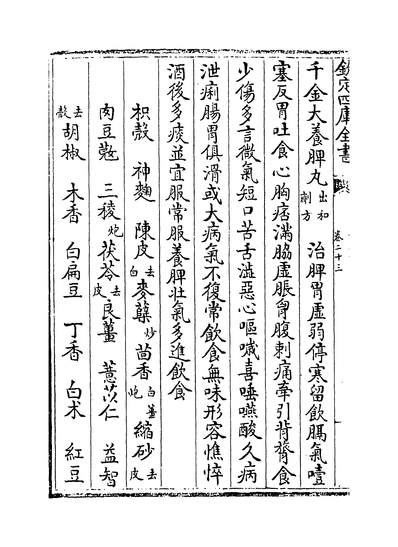 欽定四庫全書 卷二十三
千金大養脾丸 出和劑方 治脾胃虛弱停寒留飲膈氣噎
塞反胃吐食心胸痞滿脇虛脹胷腹刺痛牽引背膂食
少傷多言微氣短口苦舌澁惡心嘔噦喜唾嚥酸久病
泄痢腸胃俱滑或大病氣不復常飲食無味形容憔悴
酒後多痰並宜服常服養脾壯氣多進飲食
枳殼 神麯 陳皮去白 麥蘖炒 茴香 白薑炮 縮砂去皮
肉豆蔻 三稜炮 茯苓去皮 良薑 薏苡仁 益智
去殼 胡椒 木香 白扁豆 丁香 白术 紅豆